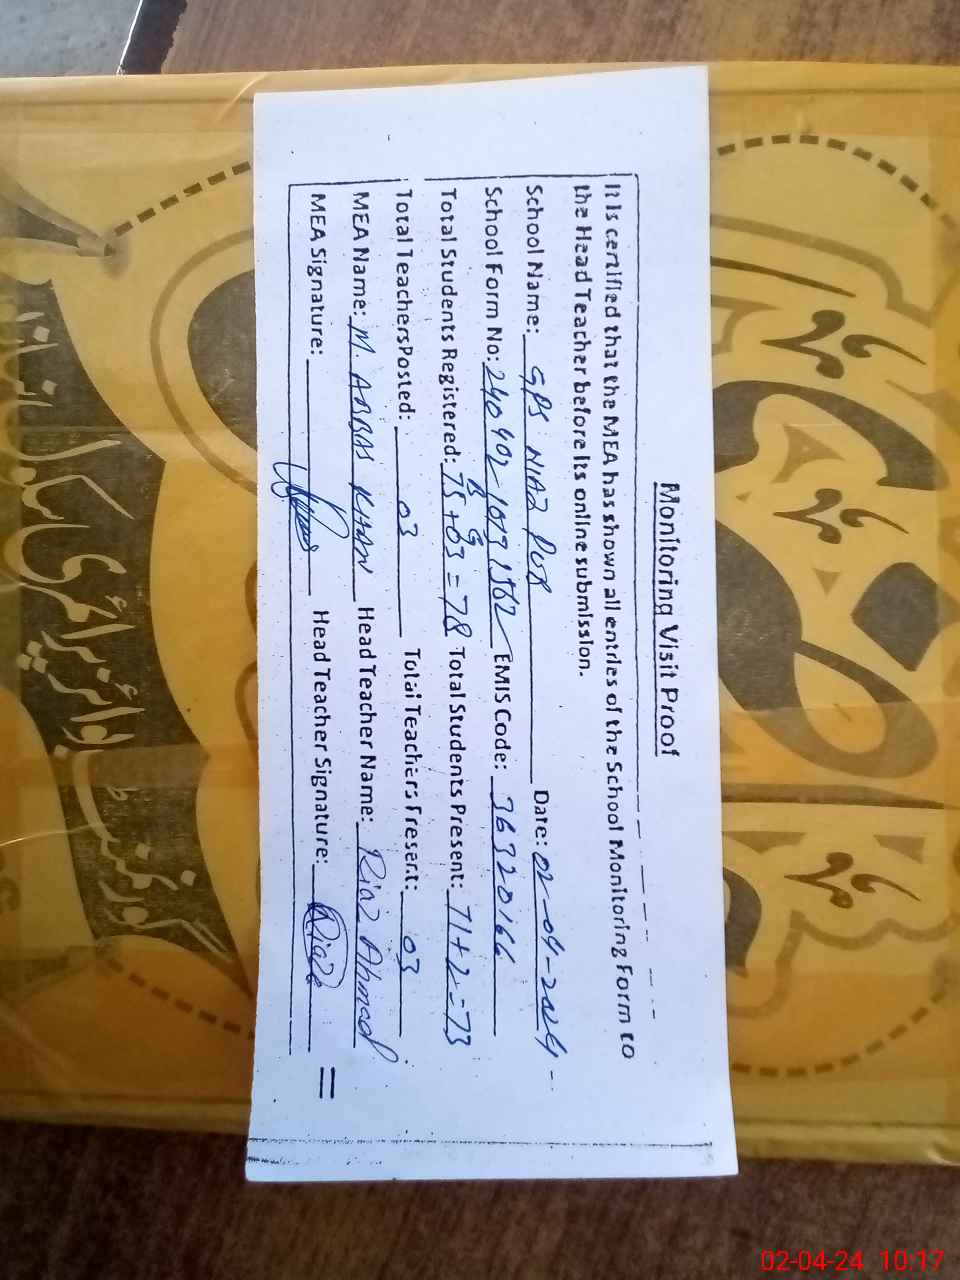 Monitoring Visit Proof
It is certified that the MEA has shown all entries of the School Monitoring Form to
the Head Teacher before its online submission.
School Name: GPS NIAZ PUR Date: 02-04-2024
School Form No: 240402-1073 EMIS Code: 36320166
B G
Total Students Registered: 75+03=78 Total Students Present: 71+2=73
Total Teachers Posted: 03 Total Teachers Present: 03
MEA Name: M. ABBAS KHAN Head Teacher Name: Riaz Ahmad
MEA Signature: Head Teacher Signature: Riaz
گورنمنٹ بوائز پرائمری سکول نیاز
02-04-24 10:17